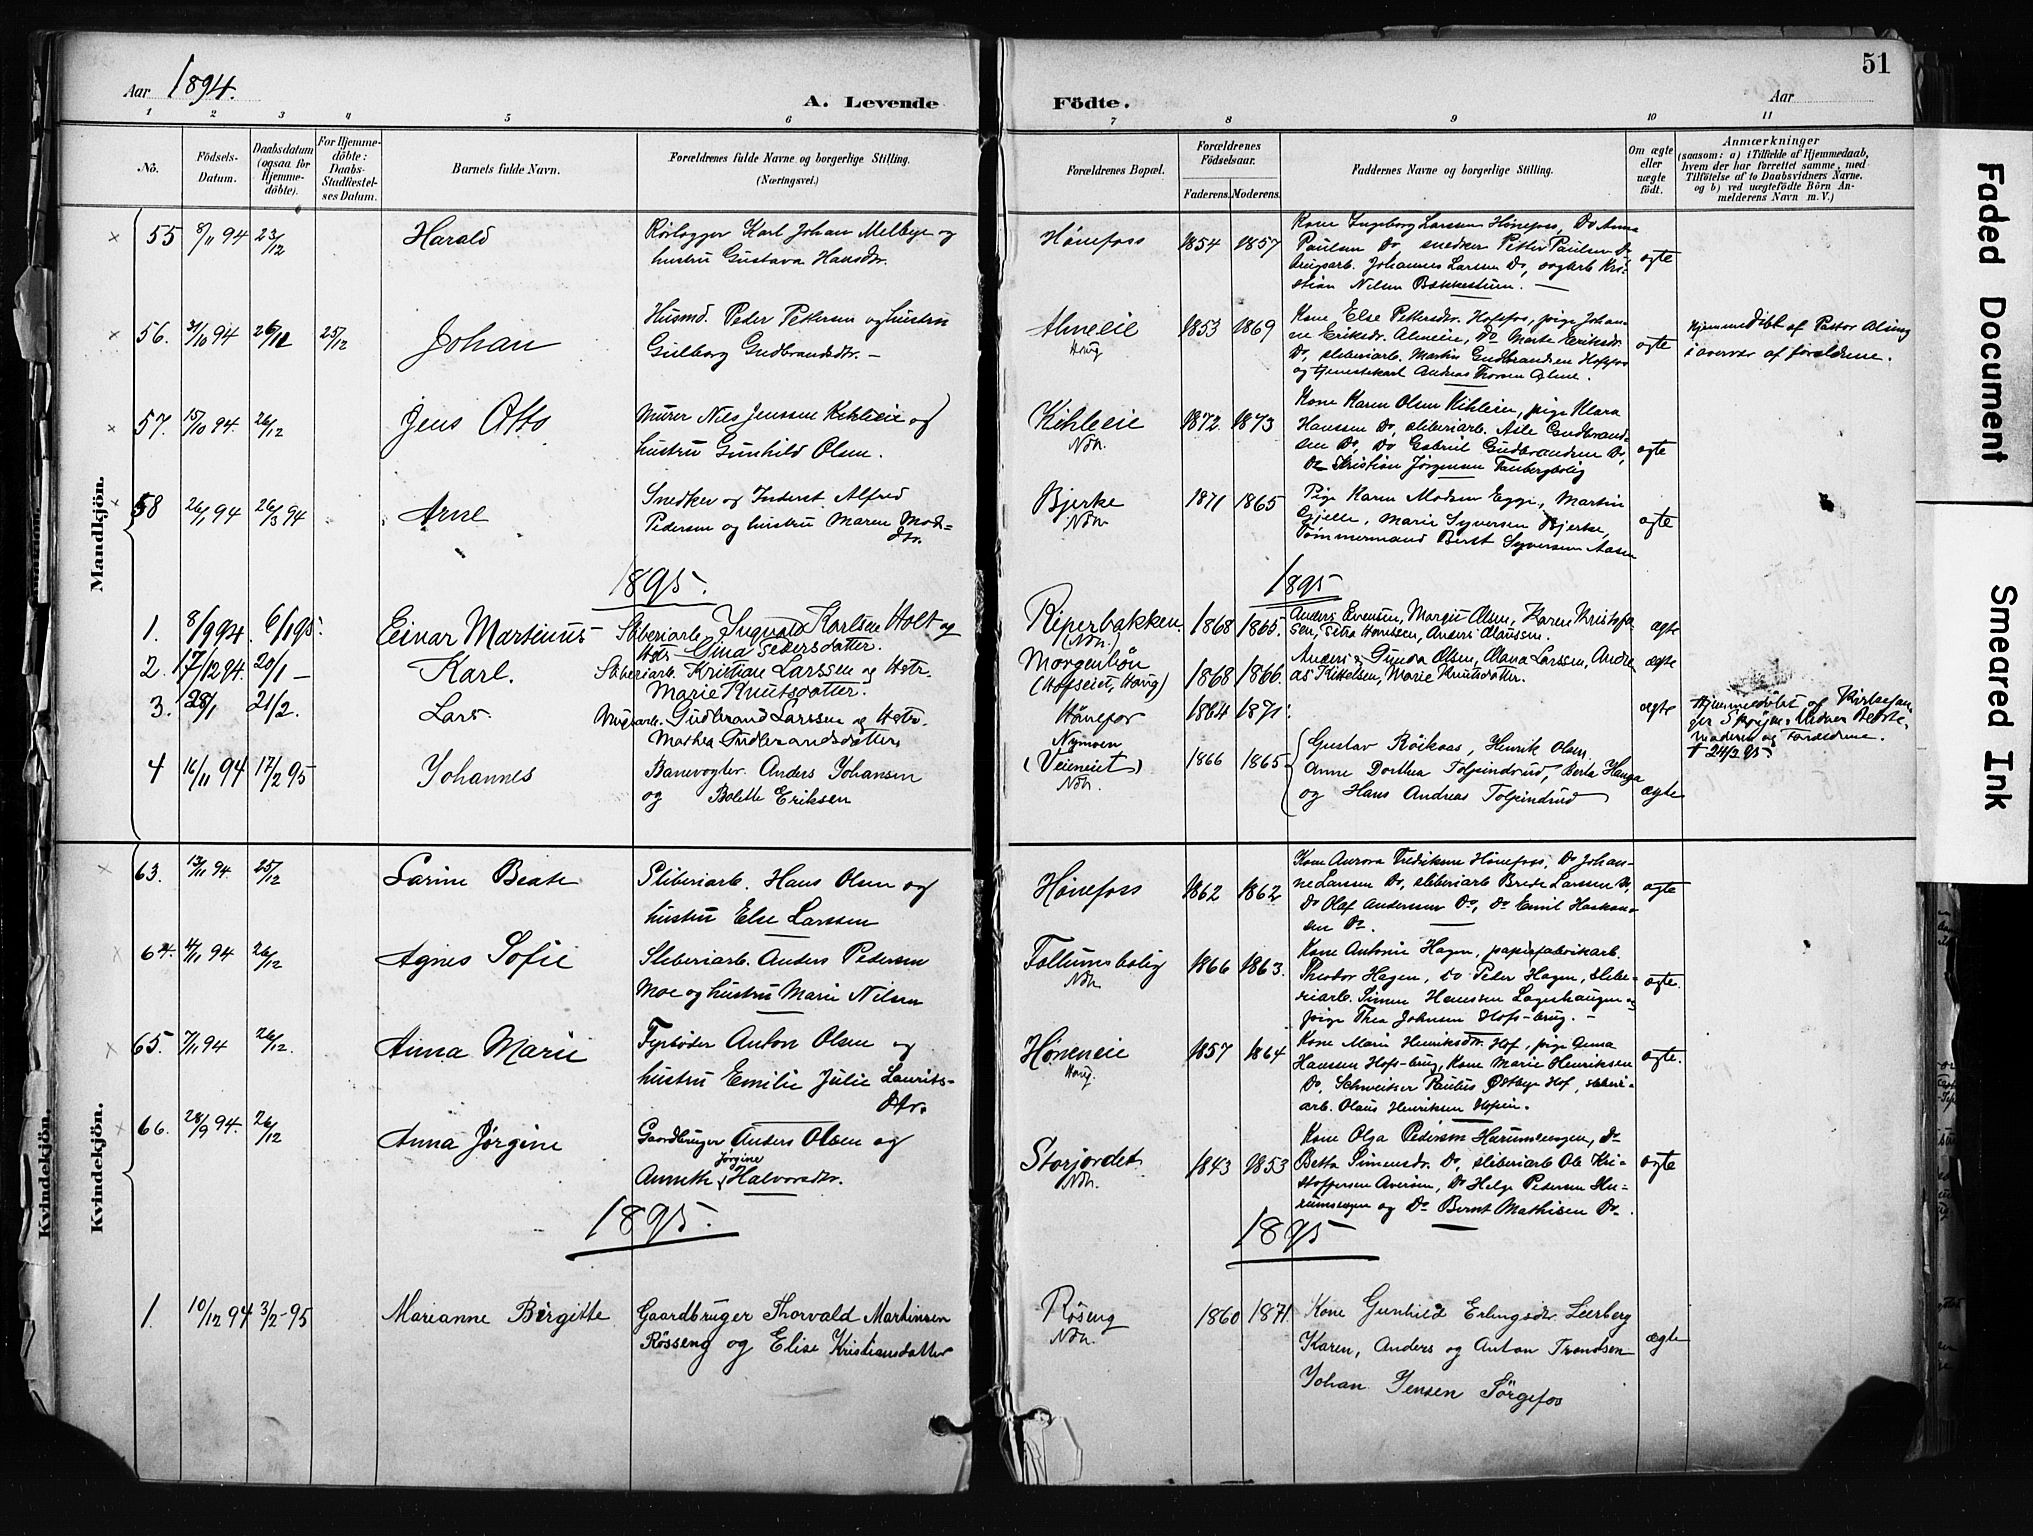 51
Aar 1894.
A. Levende
Födte.
Aar
1 2 3 4 5 6 7 8 9 10 11
No.
Födsels-Datum.
Daabsdatum (ogsaa for Hjemme-döbte).
For Hjemme-döbte: Daabs-Stadfæstelses Datum.
Barnets fulde Navn.
Forældrenes fulde Navne og borgerlige Stilling. (Næringsvei.)
Forældrenes Bopæl.
Forældrenes Födselsaar.
Faderens. Moderens.
Faddernes Navne og borgerlige Stilling.
Om ægte eller uægte födt.
Anmærkninger
(saasom: a) i Tilfælde af Hjemmedaab, hvem der har forrettet samme, med Tilföielse af to Daabsvidners Navne. og b) ved uægtefödte Börn Anmelderens Navn m. V.)
Mandkjön.
55 8/11 94 23/12 Harald
Rørlægger Karl Johan Melbye og
hustru Gustava Hansdtr.
Hønefoss 1854 1857
Kone Ingeborg Larsen Hønefoss, Do Anna
Paulsen Do, snedker Petter Paulsen Do
brugsarb. Johannes Larsen Do, Kri-
stian Nilsen Bakkestuen. ægte
56. 31/10 94 26/12 25/12 Johan
Husmd. Peder Pettersen og hustru
Gulborg Gudbrandsdtr.
Almeie Houg 1853 1869
Kone Else Pettersdtr. Hoffos, pige Johan-
ne Eriksdr. Almeie, Do Marte Eriksdr.
Do, sliberiarb. Martin Gudbrandsen Hoffos
og tjenestekarl Andreas Thorsen Alme. ægte
Hjemmedöbt af Pastor Alsing
i overvær af forældrene.
57. 15/10 94. 26/12 Jens Otto
Murer Nils Jenssen Kihleeie og
hustru Gunhild Olsen.
Kihleeie Ndh. 1872 1873
Kone Karen Olsen Kihleeie, pige Klara
Hanssen Do, sliberiarb. Asle Gudbrand-
sen Do, Do Gabriel Gudbrandsen Do,
Do Kristian Jørgensen Tanbergbolig ægte
58 26/1 94 26/3 94 Arne
Snedker og Inderst Alfred
Pedersen og hustru Maren Mads-
dtr.
Bjerke Ndh. 1871 1865
Pige Karen Madsen Egge, Martin
Gjelle, Marie Syversen Bjerke,
Tømmermand Bernt Syversen Aasen ægte
1895. 1895
1. 8/9 94. 6/1 95. Einar Martinus
Sliberiarb. Ingvald Karlsen Holt og
Hstr. Gina Pedersdatter.
Riperbakken Ndh. 1868 1865.
Anders Evensen, Margit Olsen, Karen Kristof-
sen, Petra Hansen, Anders Olaussen. ægte
2. 17/12 94. 20/1 — Karl.
Sliberiarb. Kristian Larssen og Hstr.
Marie Knutsdatter.
Morgenbøn (Hofseiet, Houg) 1868 1866.
Anders, Gunda Olsen, Olava Larssen, Andre-
as Kittelsen, Marie Knutsdotter. ægte
3. 28/1 21/2. Lars.
Gudbrand Larssen og Hstr.
Mathea Gudbrandsdatter.
Hønefos 1864 1871. ægte
Hjemmedöbt af Kirkesan-
ger Skøien. Vidner Bedste-
moderen og Forældrene.
† 24/3 95.
4 16/11 94 17/2 95 Johannes
Banevogter Anders Johansen
og Bolette Eriksen
Nymoen (Veieneiet) Ndh. 1866 1865
Gustav Röikaas, Henrik Olsen,
Anne Dorthea Tolpinrud, Berta Hauga
og Hans Andreas Tolpinrud ægte
Kvindekjön.
63. 13/11 94. 25/12 Sarine Beate
Sliberiarb. Hans Olsen og
hustru Else Larssen
Hønefoss 1862 1862
Kone Aurora Fredriksen Hønefoss, Do Johan-
ne Larssen Do, sliberiarb Brede Larssen Do,
Do Olaf Anderssen Do, Do Emil Haakon-
sen Do. ægte
64. 4/11 94 26/12 Agnes Sofie
Sliberiarb. Anders Pedersen
Moe og hustru Marie Nilsen
Follumsbolig Ndh. 1866 1863.
Kone Antonie Hagen, papirfabrikarb.
Theodor Hagen, Do Peder Hagen, slibe-
riarb. Simen Hanssen Lagerhaugen og
pige Thea Johnsen Hofs-brug. ægte.
65. 7/11 94 26/12. Anna Marie
Fyrbøder Anton Olsen og
hustru Emilie Julie Laurits-
dtr.
Høneneie Houg. 1857 1864
Kone Marie Henriksdtr. Hof, pige Anna
Hanssen Hofs-brug, Kone Marie Henriksen
Do, Schweitser Paulus Østbye Hof, sliberi-
arb. Olaus Henriksen Hofein. ægte.
66. 28/9 94. 26/12 Anna Jørgine
Gaardbruger Anders Olsen og
Annethe Jørgine Halvorsdtr.
Storjordet Ndh. 1843 1853
Kone Olga Pedersen Harumsengen, Do
Betta Simensdr. Do, sliberiarb Ole Kri-
stoffersen Averøen, Do Helge Pedersen Ha-
rumsengen og Do Bernt Mathisen Do. ægte
1895. 1895
1. 10/12 94 3/2-95 Marianne Birgitte
Gaardbruger Thorvald Martinsen
Røsseng og Elise Kristiansdatter
Røseng Ndh. 1860 1871.
Kone Gunhild Erlingsdr. Leerberg
Karen, Anders og Anton Trondsen
Johan Jensen Sörgefos ægte
Kvindekjön.
Faded Document
Smeared Ink